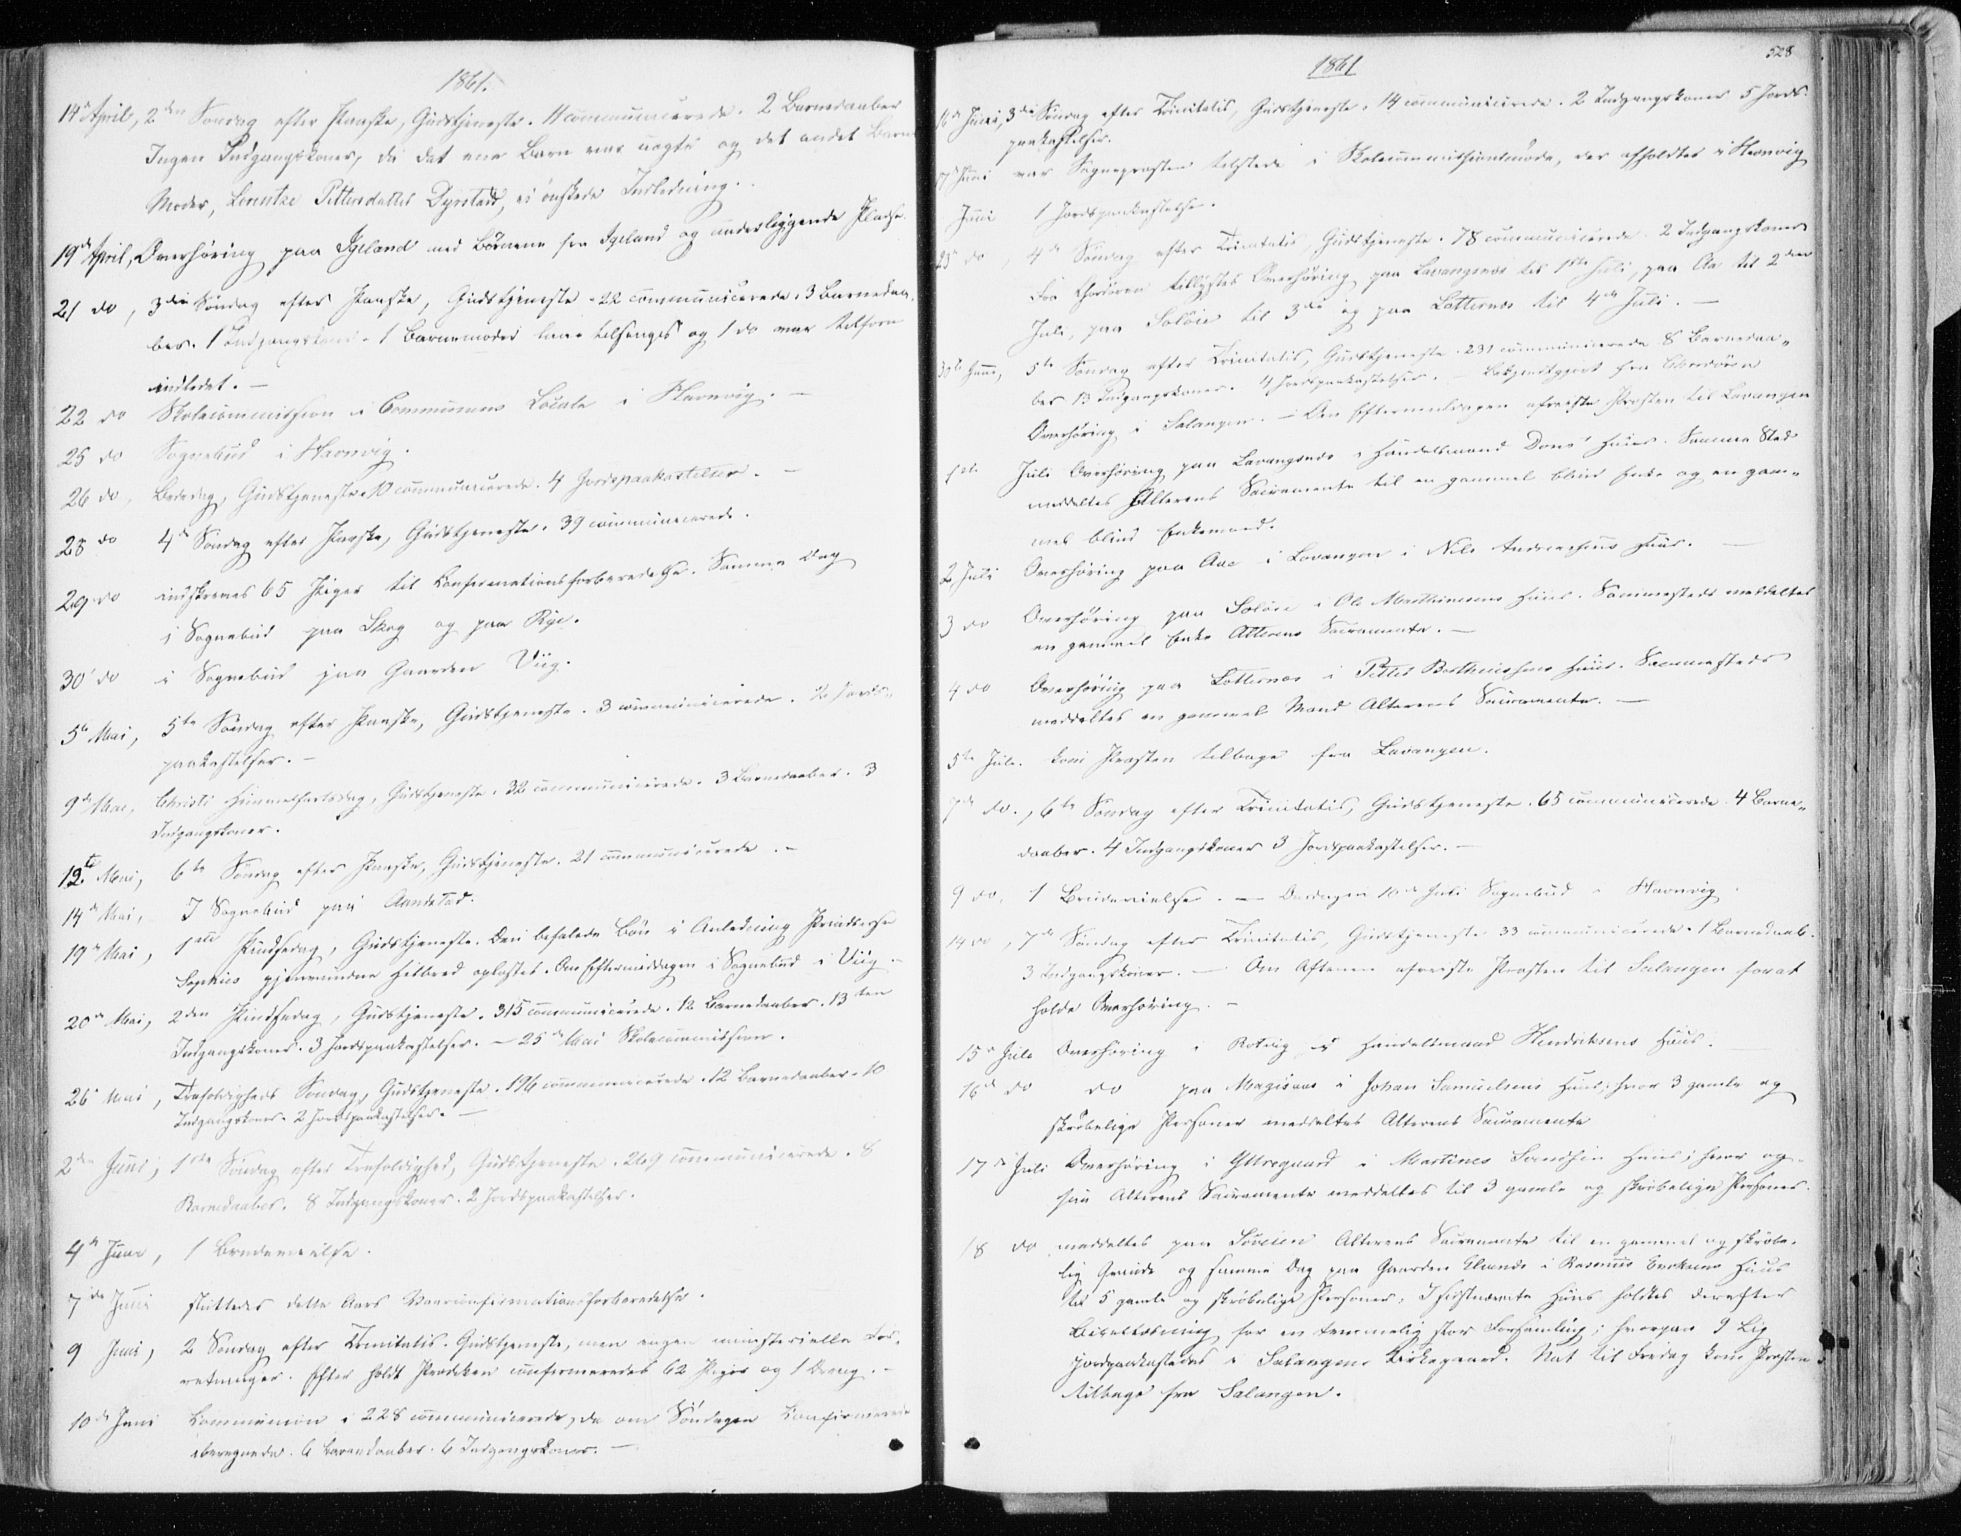 1861.
14de April, 2den Søndag efter Paaske, Gudstjeneste. 11 communicerede. 2 Barnedaaber
Ingen Indgangskoner, da det ene Barn var uægte og det andet Barns
Moder, Lorentze Pettersdatter Dyrstad, ei ønskede Indledning.
19de April, Overhøring paa Igeland med Børnene fra Igeland og underliggende Pladse.
21 do, 3die Søndag efter Paaske, Gudstjeneste. 22 communicerede. 3 Barnedaa,
ber. 1 Indgangskone. 1 Barnemoder laae tilsengs og 1 do var tilforn
indledet. —
22 do Skolecommission i Communens Locale i Havnvig. —
25 do Sognebud i Havnvig.
26 do, Bededag, Gudstjeneste. 10 communicerede. 4 Jordspaakastelser. —
28 do 4de Søndag efter Paaske, Gudstjeneste. 39 communicerede.
29 do indskrevnes 65 Piger til Confirmationsforberedelse. Samme Dag
i Sognebud paa Skog og paa Rye.
30 do i Sognebud paa Gaarden Viig.
5te Mai, 5te Søndag efter Paaske, Gudstjeneste. 3 communicerede. 2 Jords,
paakastelser. —
9de Mai, Christi Himmelfartsdag, Gudstjeneste. 32 communicerede. 3 Barnedaaber. 3
Indgangskoner.
12te Mai, 6te Søndag efter Paaske, Gudstjeneste. 21 communicerede. —
14de Mai, I Sognebud paa Aandstad.
19de Mai, 1ste Pindsedag, Gudstjeneste. Den befalede Bøn i Anledning Prindsesse
Sophies gjenvundne Helbred oplæstes. Om Eftermiddagen i Sognebud i Viig. —
20de Mai, 2den Pindsedag, Gudstjeneste. 315 communicerede. 12 Barnedaaber. 13ten
Indgangskoner. 3 Jordspaakastelser. — 25de Mai Skolecommission.
26 Mai, Trefoldigheds Søndag, Gudstjeneste. 196 communicerede. 12 Barnedaaber. 10
Indgangskoner. 2 Jordspaakastelser. —
2den Juni, 1ste Søndag efter Trefoldighed, Gudstjeneste. 269 communicerede. 8
Barnedaaber. 8 Indgangskoner. 2 Jordspaakastelser.
4de Juni, 1 Brudevielse.
7de Juni sluttedes dette Aars Vaarconfirmationsforberedelse.
9 Juni, 2 Søndag efter Trinitatis. Gudstjeneste, men ingen ministerielle For,
retninger. Efter holdt Prædiken confirmeredes 62 Piger og 1 Dreng. —
10de Juni Communion i 228 communicerede, da om Søndagen Confirmerede
iberegnede. 6 Barnedaaber. 6 Indgangskoner. —
528
1861
16de Juni, 3die Søndag efter Trinitatis, Gudstjeneste. 14 communicerede. 2 Indgangskoner 5 Jords-
paakastelser.
17 Juni var Sognepræsten tilstede i Skolecommissionsmøde, der afholdtes i Havnvig
Juni 1 Jordspaakastelse.
23 do, 4de Søndag efter Trinitatis, Gudstjeneste. 78 communicerede. 2 Indgangskoner
Fra Chordøren tillystes Overhøring paa Lavangsnæs til 1ste Juli, paa Aa til 2den
Juli, paa Soløie til 3die og paa Lotternæs til 4de Juli. —
30te Juni, 5te Søndag efter Trinitatis, Gudstjeneste. 231 communicerede 8 Barnedaa,,
ber 13 Indgangskoner. 4 Jordspaakastelser. — Bekjendtgjort fra Chordøren
Overhøring i Salangen. — Om Eftermiddagen afreiste Præsten til Lavangen
1ste Juli Overhøring paa Lavangsnæs i Handelsmand Dons' Huus. Samme Sted
meddeltes Alterens Sacramente til en gammel blind Enke og en gam,,
mel blind Enkemand.
2 Juli Overhøring paa Aae i Lavangen i Nils Andreasens Huus. —
3 do Overhøring paa Soløie i Ole Mathisens Huus. Sammesteds meddeltes
en gammel Enke Alterens Sacramente. —
4 do Overhøring paa Lotternæs i Petter Berthinsens Huus. Sammesteds
meddeltes en gammel Mand Alterens Sacramente. —
5te Juli. kom Præsten tilbage fra Lavangen.
7de do., 6te Søndag efter Trinitatis, Gudstjeneste. 65 communicerede. 4 Barne,,
daaber. 4 Indgangskoner 3 Jordspaakastelser. —
9 do, 1 Brudevielse. — Onsdagen 10de Juli Sognebud i Havnvig.
14 do, 7de Søndag efter Trinitatis, Gudstjeneste 33 communicerede. 1 Barnedaab.
3 Indgangskoner. — Om Aftenen afreiste Præsten til Salangen forat
holde Overhøring. —
15de Juli Overhøring i Rotvig i Handelsmand Hendriksens Huus.
16de do do paa Magisaas i Johan Samuelsens Huus; hvor 3 gamle og
skrøbelige Personer meddeltes Alterens Sacramente
17de Juli Overhøring i Yttregaard i Martines Huus; hvor og-
saa Alterens Sacramente meddeltes til 3 gamle og skrøbelige Personer.
18 do meddeltes paa Søveien Alterens Sacramente til en gammel og skrøbe-
lig Qvinde og samme Dag paa Gaarden Elvenæs i Rasmus Huus
til 5 gamle og skrøbelige Personer. I sidstnævnte Huus holdtes derefter
Bibellæsning for en temmelig stor Forsamling; hvorpaa 9 Lig
jordpaakastedes i Salangens Kirkegaard. Nat til Fredag kom Præsten
tilbage fra Salangen.